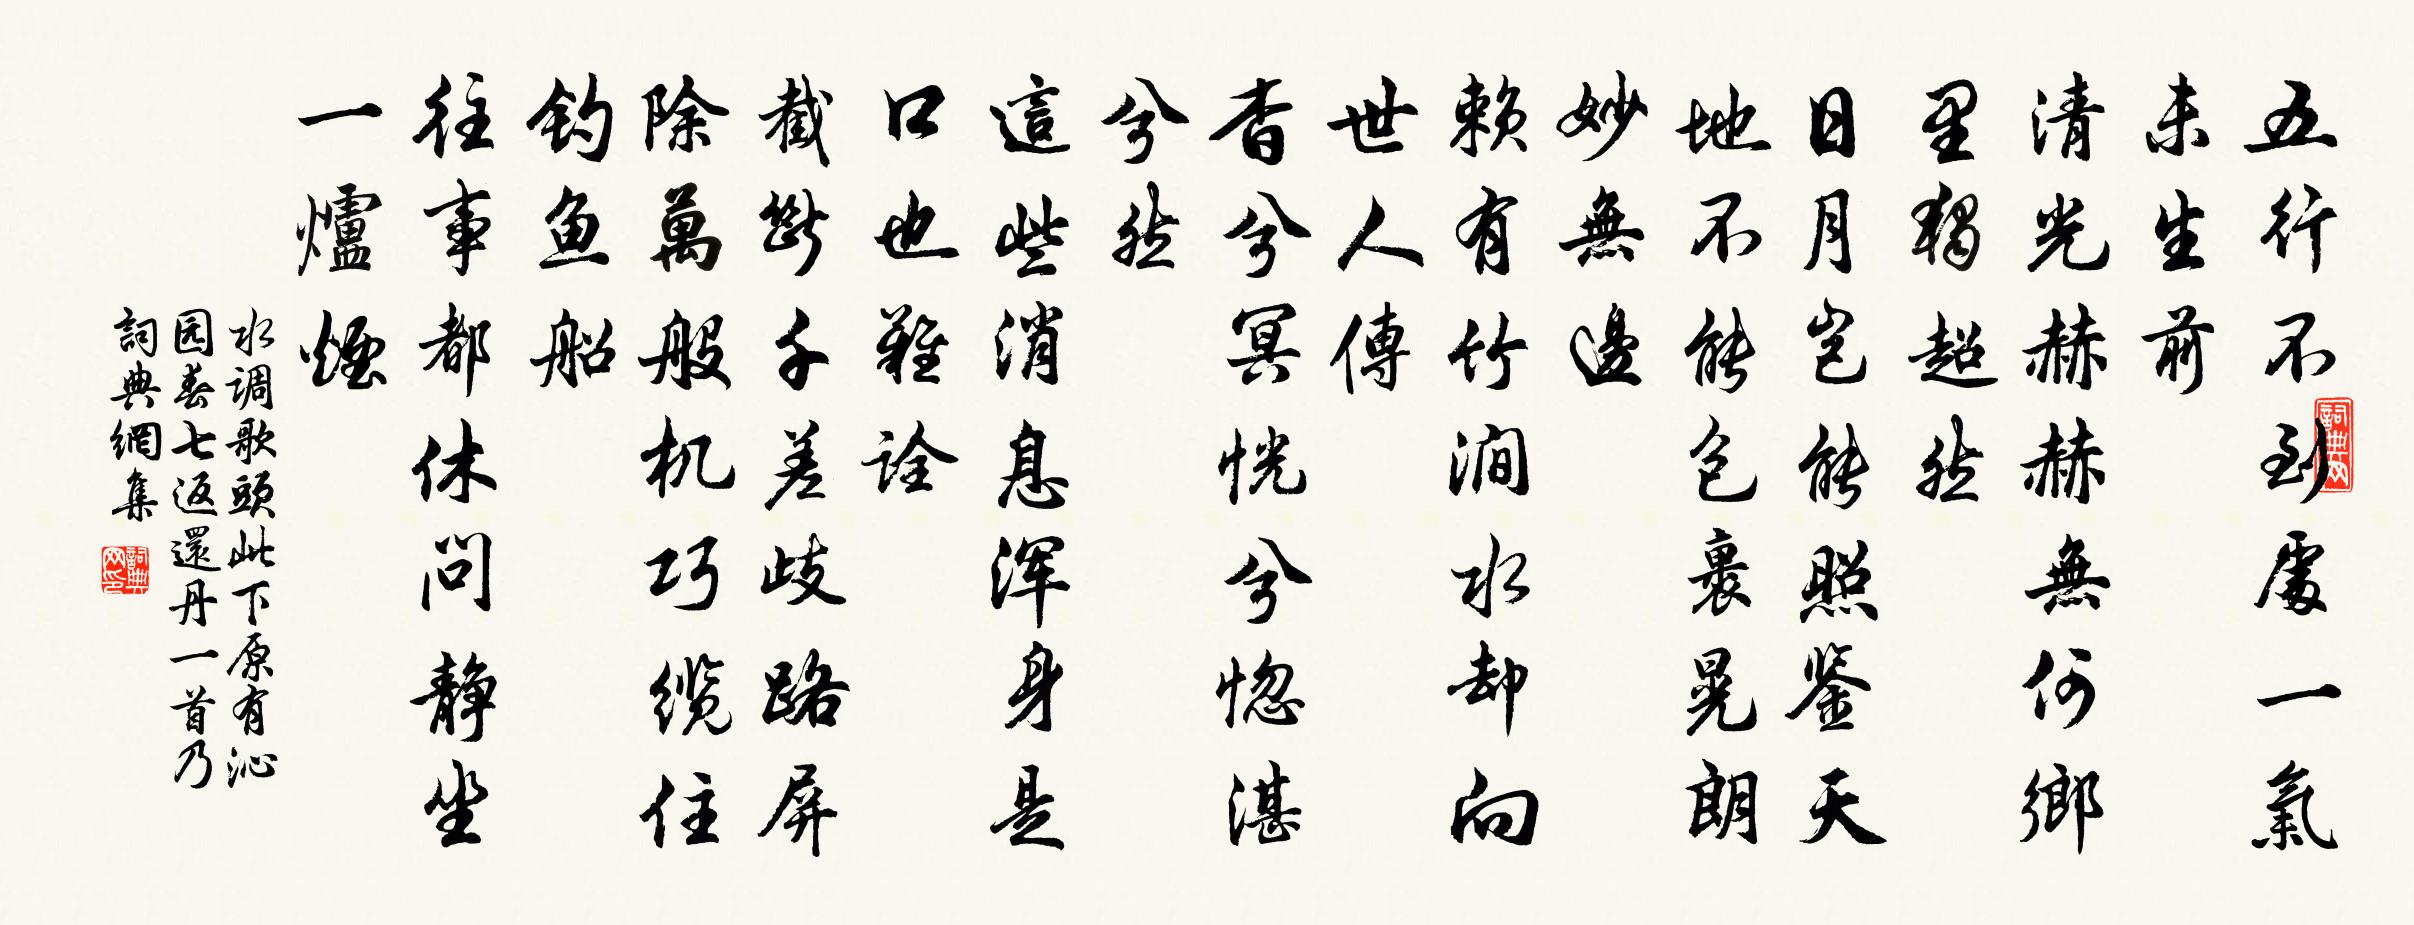 五行不到處一氣
未生前
清光赫赫無何鄉
里獨超然
日月豈能照鉴天
地不能包裹晃朗
妙無邊
赖有竹澗水却向
世人傳
杳兮冥恍兮惚湛
兮然
這些消息浑身是
口也難詮
截斷千差歧路屏
除萬般机巧缆住
钓鱼船
往事都休问静坐
一爐煙
水调歌頭此下原有沁
园春七返還丹一首乃
詞典網集
詞典网
詞典网印